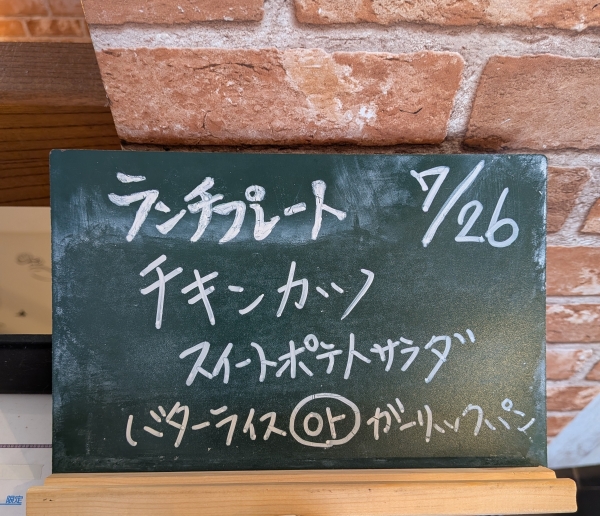 ランチプレート 7/26
チキンカツ
スイートポテトサラダ
バターライス or ガーリックパン
限定